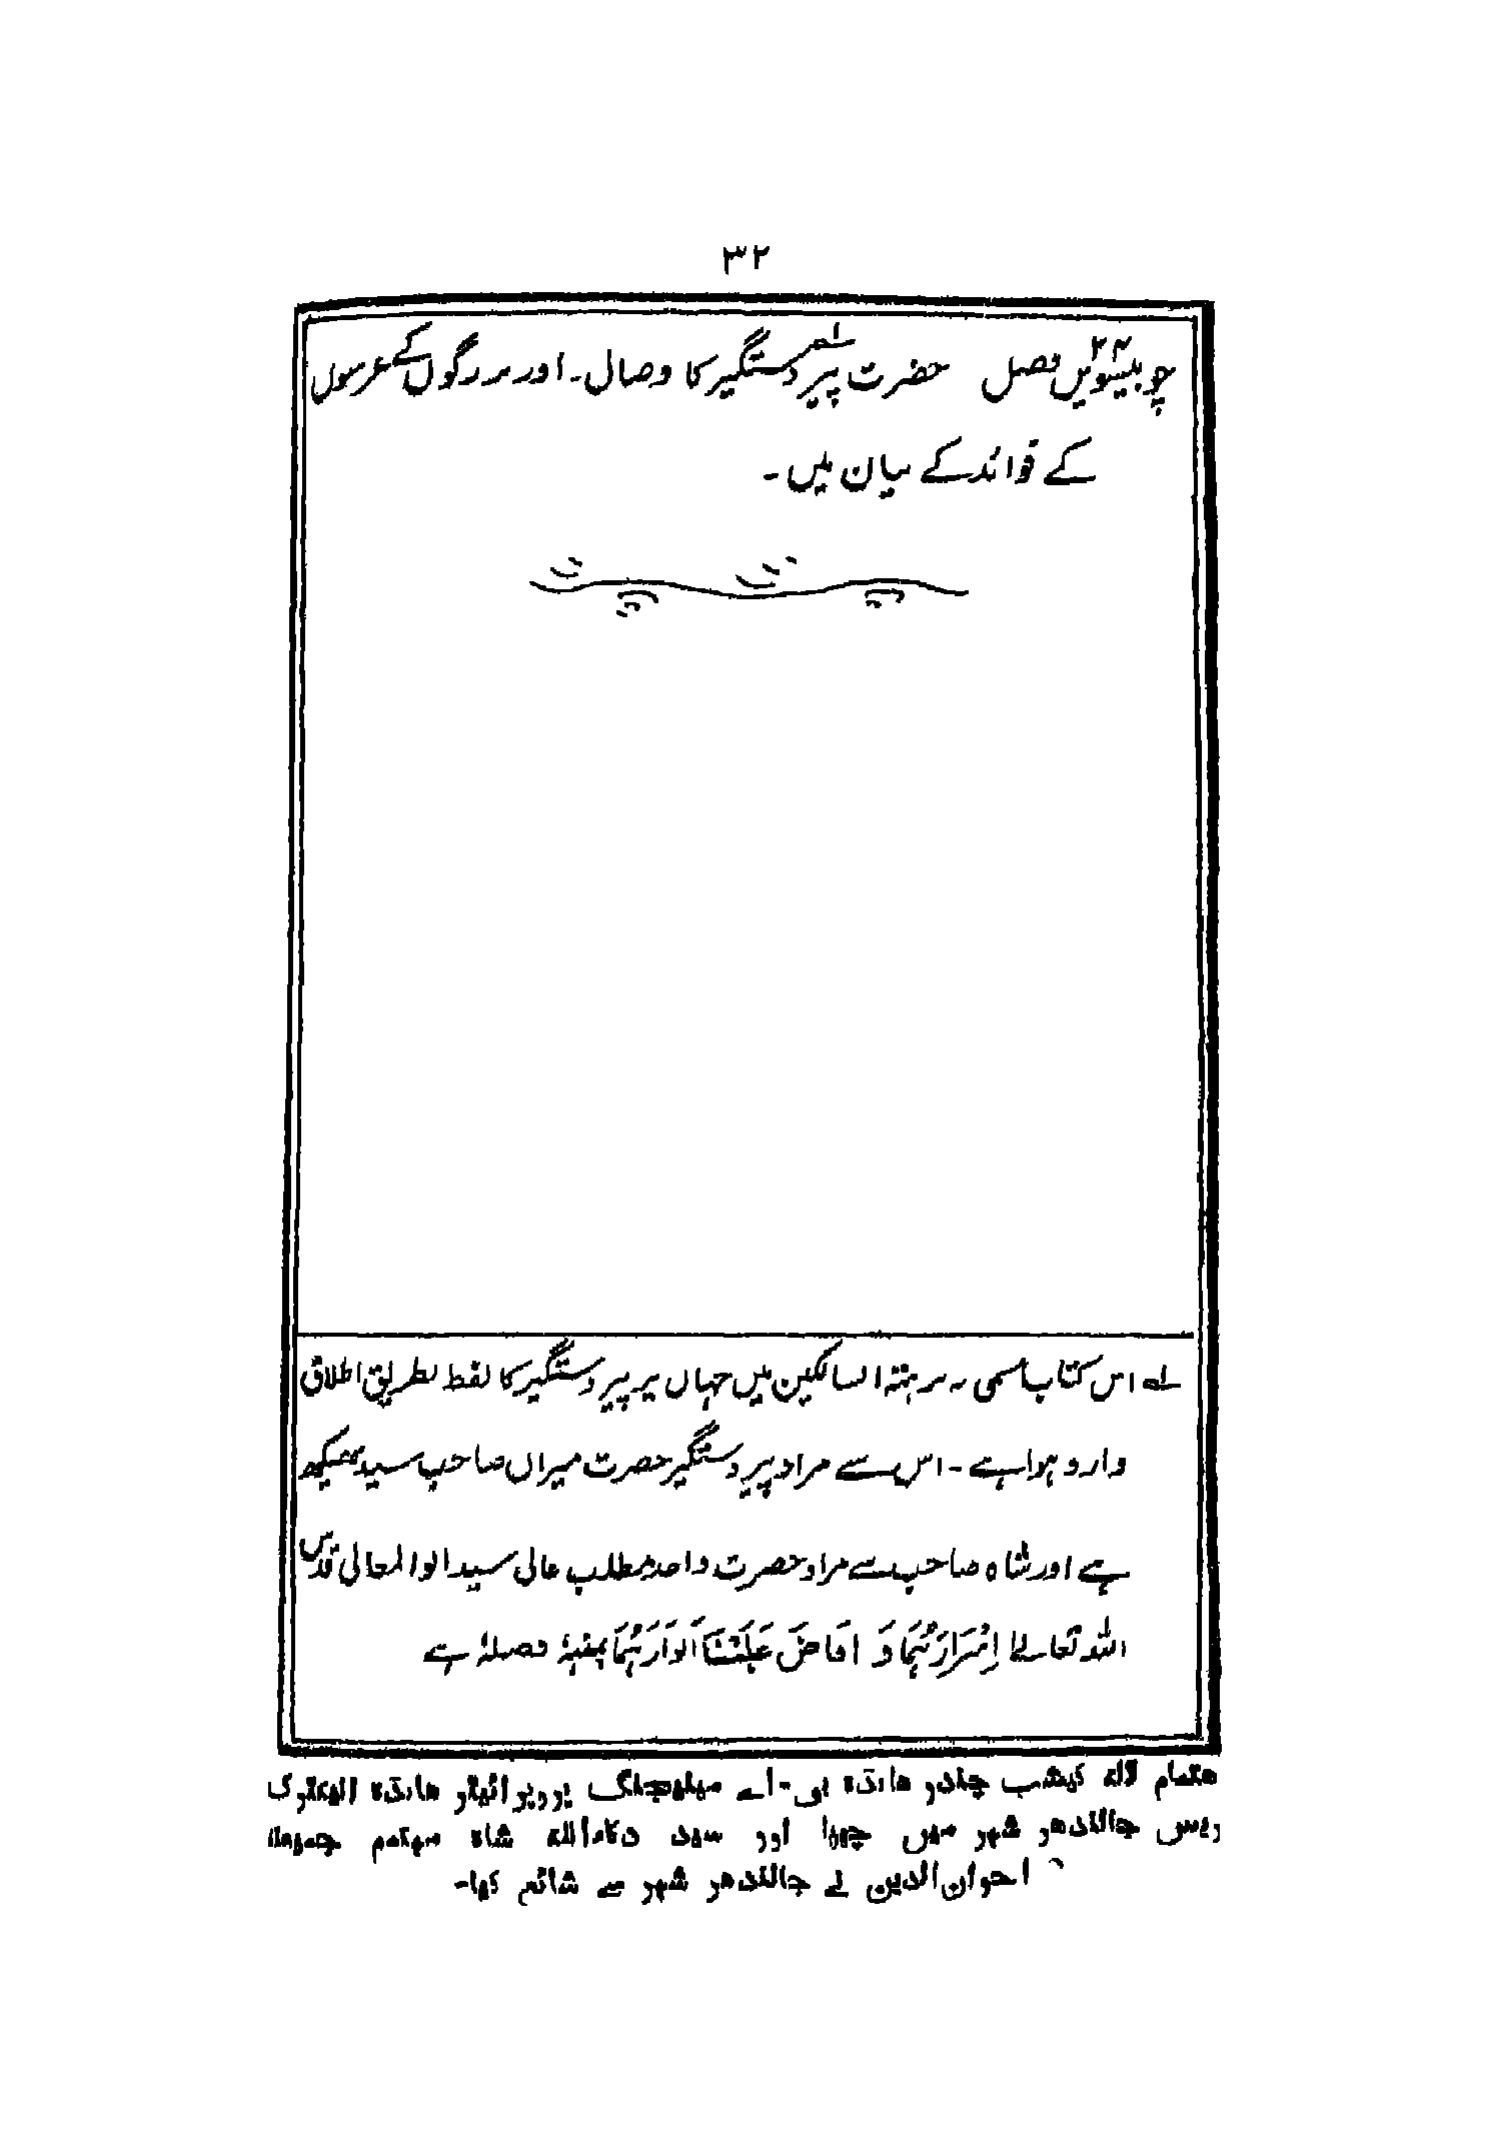 ۳۲
چوبیسویں۲۴ فصل حضرت پیر دستگیر۱؎ کا وصال۔ اور بزرگوں کے عرسوں
کے فوائد کے بیان میں۔
۱؎ اس کتاب مسمی بہ نزہتہ السالکین میں جہاں پر پیر دستگیر کا لفظ بطریق اطلاق
وارد ہوا ہے۔ اس سے مراد پیر دستگیر حضرت میراں صاحب سید بھیکھ
ہے اور شاہ صاحب سے مراد حضرت واحد مطلب عالی سید ابو المعالی قدس
اللہ تعالےٰ اَسْرَارَہُمَا وَ اَفَاضَ عَلَیْنَا اَنْوَارَہُمَا فصلۂ ہے
لالہ کیشب چندر ھانڈہ بی۔اے مینیجنگ پروپرائیٹر ھانڈہ الیکٹرک
پریس جالندھر شہر میں چھپا اور سید ذکاءاللہ شاہ مہتمم جمیعتہ
اخوان الدین نے جالندھر شہر سے شائع کیا۔